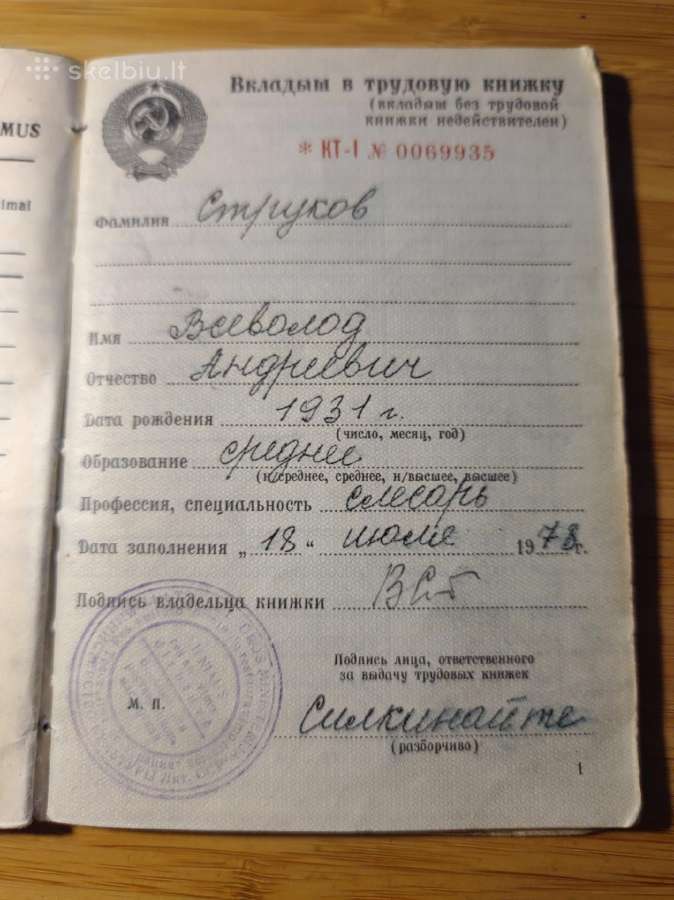 skelbiu.lt
MUS
imal
Вкладыш в трудовую книжку
(вкладыш без трудовой
книжки недействителен)
* КТ-I № 0069935
Фамилия Струков
Имя Всеволод
Отчество Андреевич
Дата рождения 1931 г.
(число, месяц, год)
Образование среднее
(н/среднее, среднее, н/высшее, высшее)
Профессия, специальность слесарь
Дата заполнения „18“ июля 1978г.
Подпись владельца книжки
Подпись лица, ответственного
за выдачу трудовых книжек
М. П.
Силкинайте
(разборчиво)
1